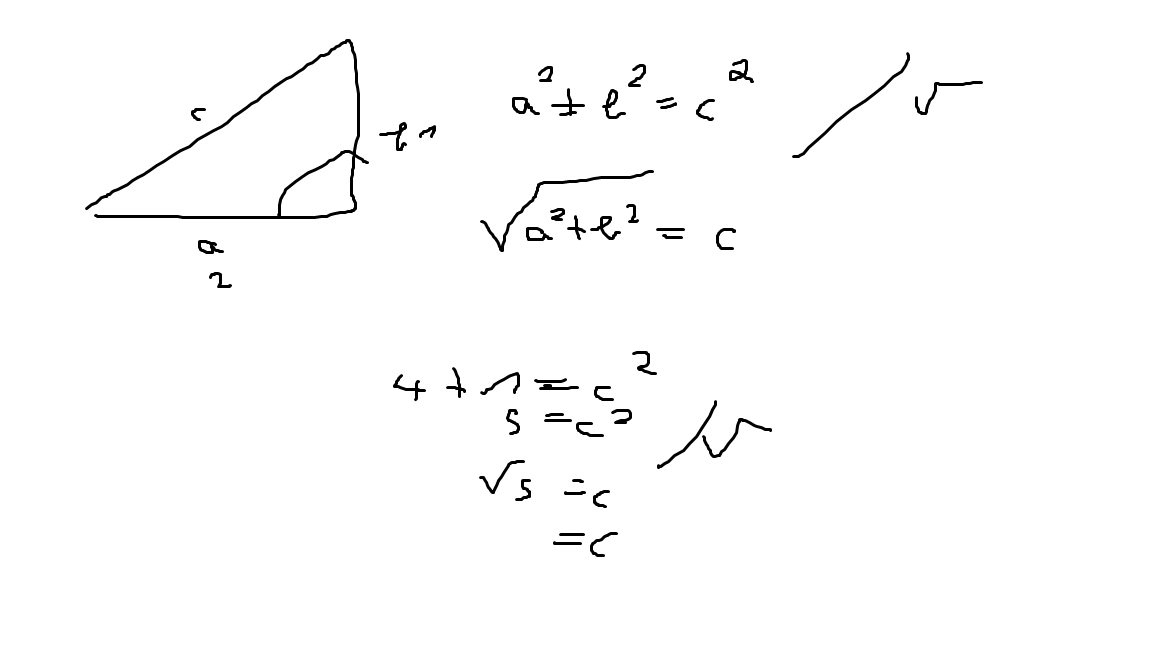 c
b 1
a
2
a² + b² = c² / √
√a² + b² = c
4 + 1 = c²
5 = c² / √
√5 = c
= c